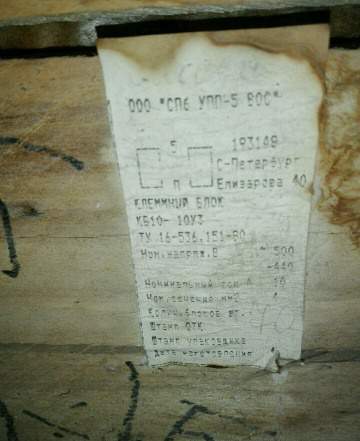 ООО "СПб УПП-5 ВОС"
5
193149
С-Петербург
П
Елизарова 40
КЛЕММНЫЙ БЛОК
КБ10- 10У3
ТУ 16-536.151-80
Ном.напряж.В ~ 500
-440
Номинальный ток А 10
Ном.сечение мм2 4
Колич.блоков шт.
Штамп ОТК
Штамп упаковщика
Дата изготовления